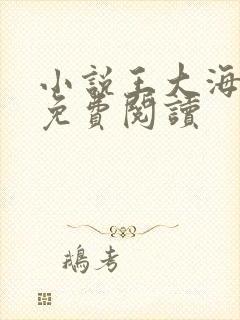 小說王大海
免費閱讀
鵝考